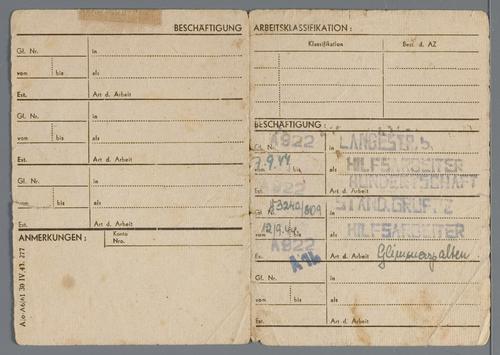 BESCHÄFTIGUNG
Gl. Nr. in
vom bis als
Est. Art d. Arbeit
Gl. Nr. in
vom bis als
Est. Art d. Arbeit
Gl. Nr. in
vom bis als
Est. Art d. Arbeit
ANMERKUNGEN: Konto Nro.
A.o-A6/61 30 IV.43. 277
ARBEITSKLASSIFIKATION:
Klassifikation Best. d. AZ
BESCHÄFTIGUNG:
A922 LANGESTR. 5.
Gl. Nr. in
7.9.44 HILFSARBEITER
vom bis als
A922 HUNDERTSCHAFT
Est. Art d. Arbeit
Gl. Nr. in STÄND.
12/9. HILFSARBEITER
vom bis als
A922
Est. Art d. Arbeit Glimmerspalten
Gl. Nr. in
vom bis als
Est. Art d. Arbeit